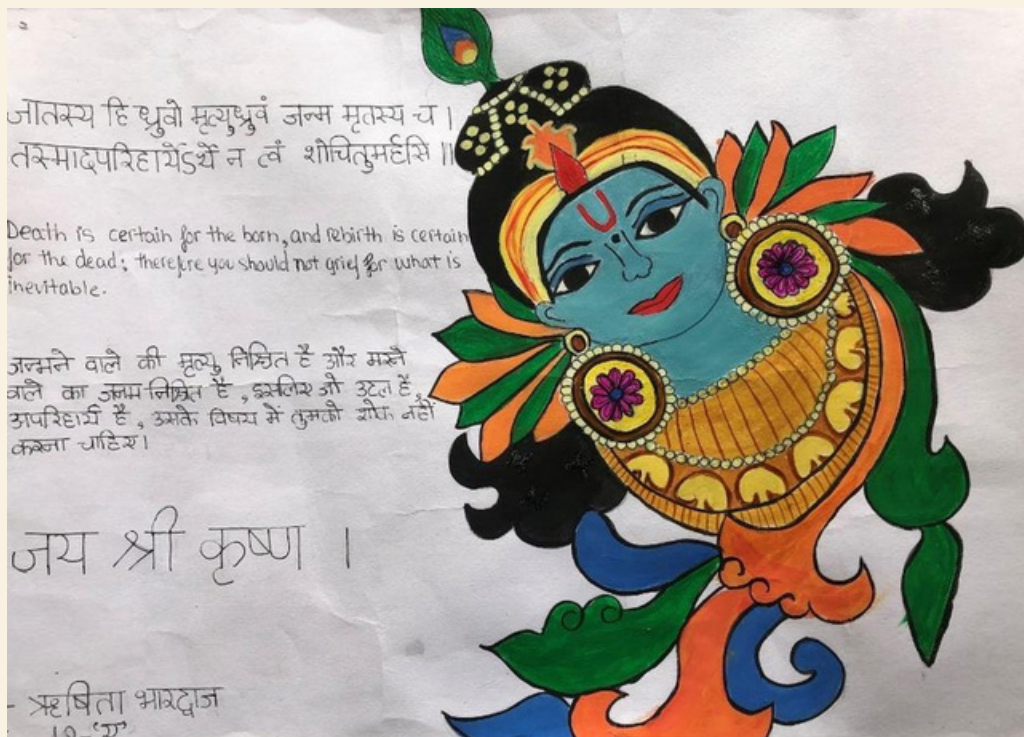 जातस्य हि ध्रुवो मृत्युध्रुवं जन्म मृतस्य च ।
तस्मादपरिहार्येऽर्थे न त्वं शोचितुमर्हसि ॥
Death is certain for the born, and rebirth is certain
for the dead; therefore you should not grief for what is
inevitable.
जन्मने वाले की मृत्यु निश्चित है और मरने
वाले का जन्म निश्चित है, इसलिए जो अटल है,
अपरिहार्य है, उसके विषय में तुमको शोक नहीं
करना चाहिए।
जय श्री कृष्ण ।
- ऋषिता भारद्वाज